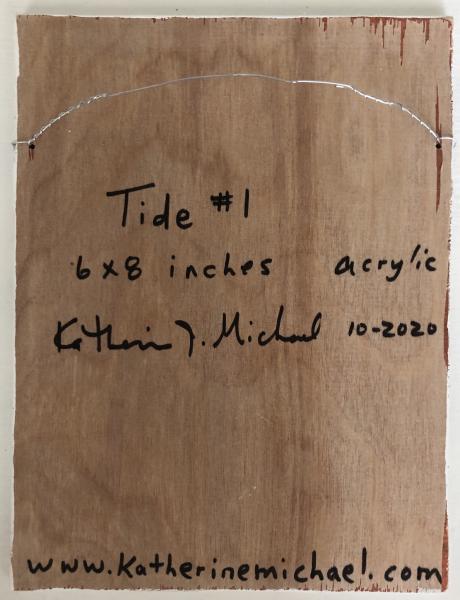 Tide #1
6x8 inches acrylic
Katherine J. Michael 10-2020
www.katherinemichael.com